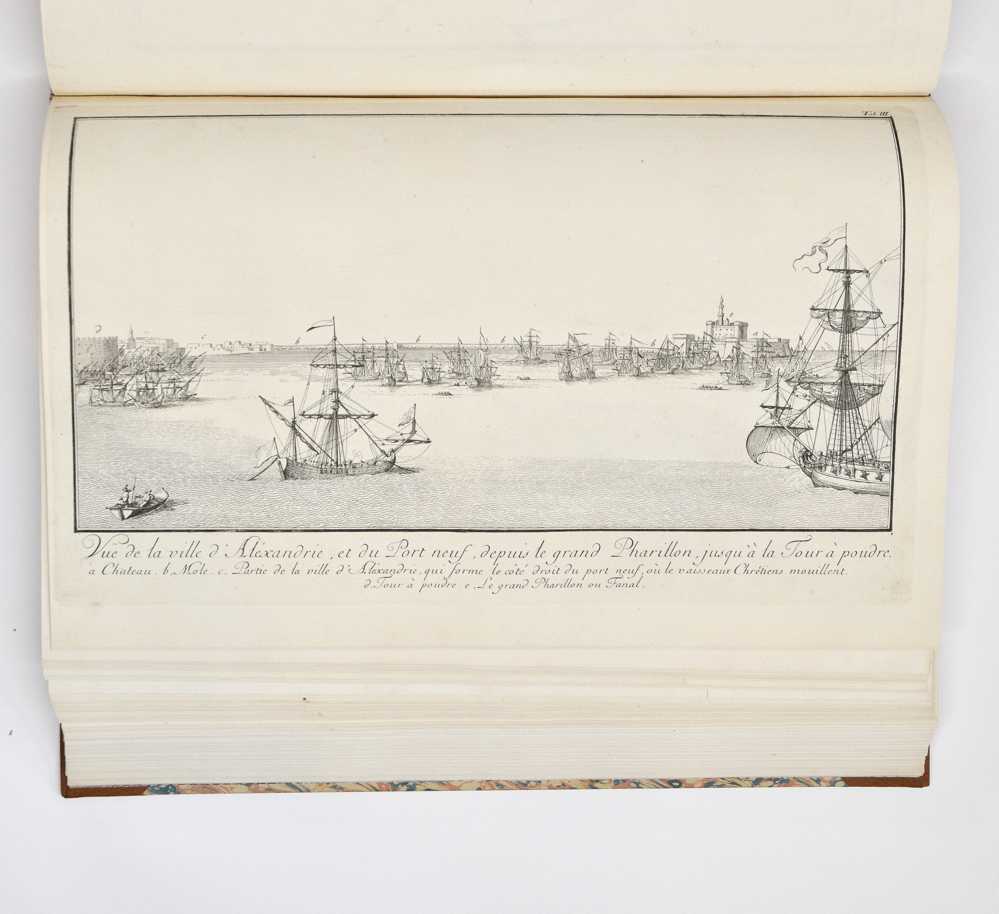 Tab. III.
Vuë de la ville d'Aléxandrie, et du Port neuf, depuis le grand Pharillon, jusqu'à la Tour à poudre.
a Chateau. b, Môle. c. Partie de la ville d'Aléxandrie, qui forme le côté droit du port neuf, où le vaisseaux Chrêtiens mouillent.
d. Tour à poudre e. Le grand Pharillon ou Fanal.